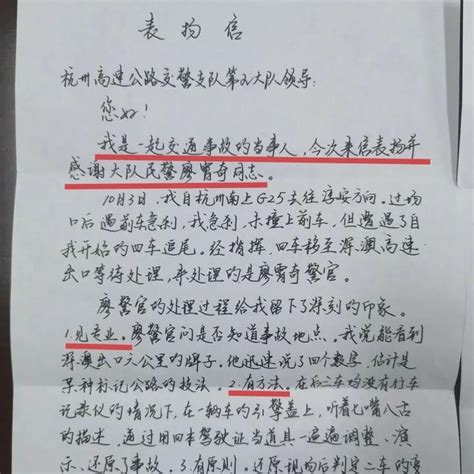 表扬信
杭州高速公路交警支队第五大队领导:
您好!
我是一起交通事故的当事人,今次来信表扬并
感谢大队民警廖胄奇同志。
10月3日,我自杭州南上G25去往淳安方向。过场
口后遇前车急刹,我急刹,未撞上前车,但遭遇了自
我开始的四车追尾。经指挥,四车移至深澳高速
出口等待处理,来处理的是廖胄奇警官。
廖警官的处理过程给我留下了深刻的印象。
1.见专业。廖警官问是否知道事故地点。我说能看到
深澳出口入公里的牌子。他迅速说了四个数字,估计是
某种标记公路的技法。2.有方法。在后三车均没有行车
记录仪的情况下,在一辆车的引擎盖上,听着七嘴八舌
的描述,通过用四本驾驶证当道具一遍遍调整、演
示、还原了事故。3.有原则。还原现场后判定二车的